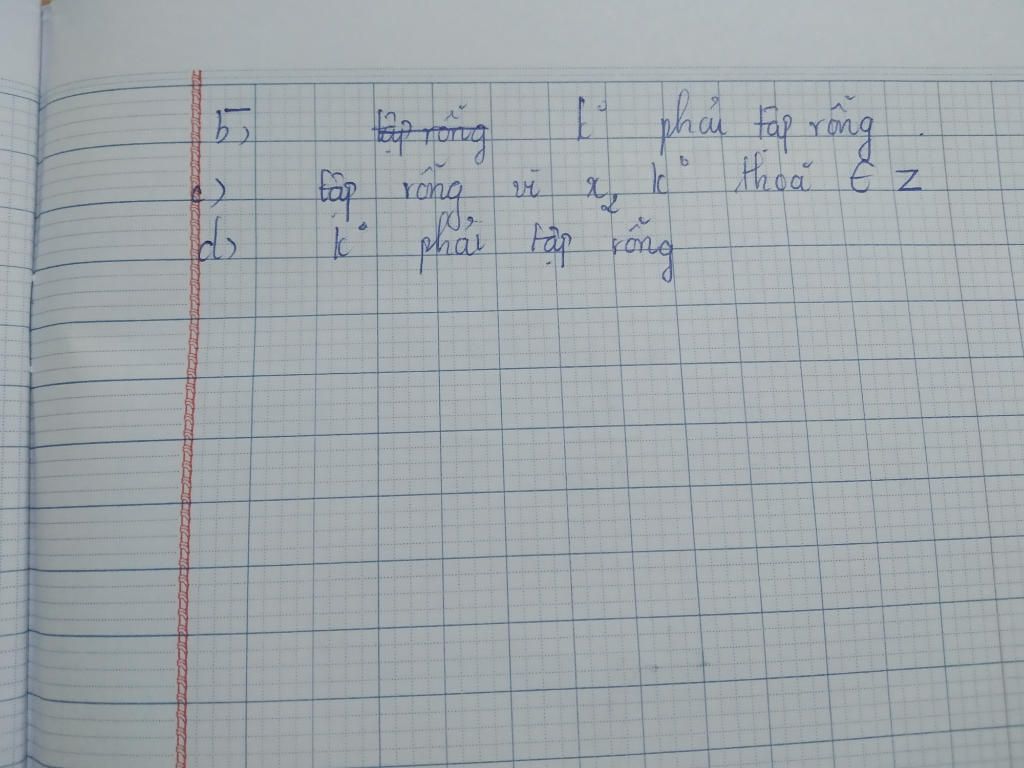 b) tập rỗng k° phải tập rỗng.
c) tập rỗng vì x₂ k° thoả ∈ Z
d) k° phải tập rỗng